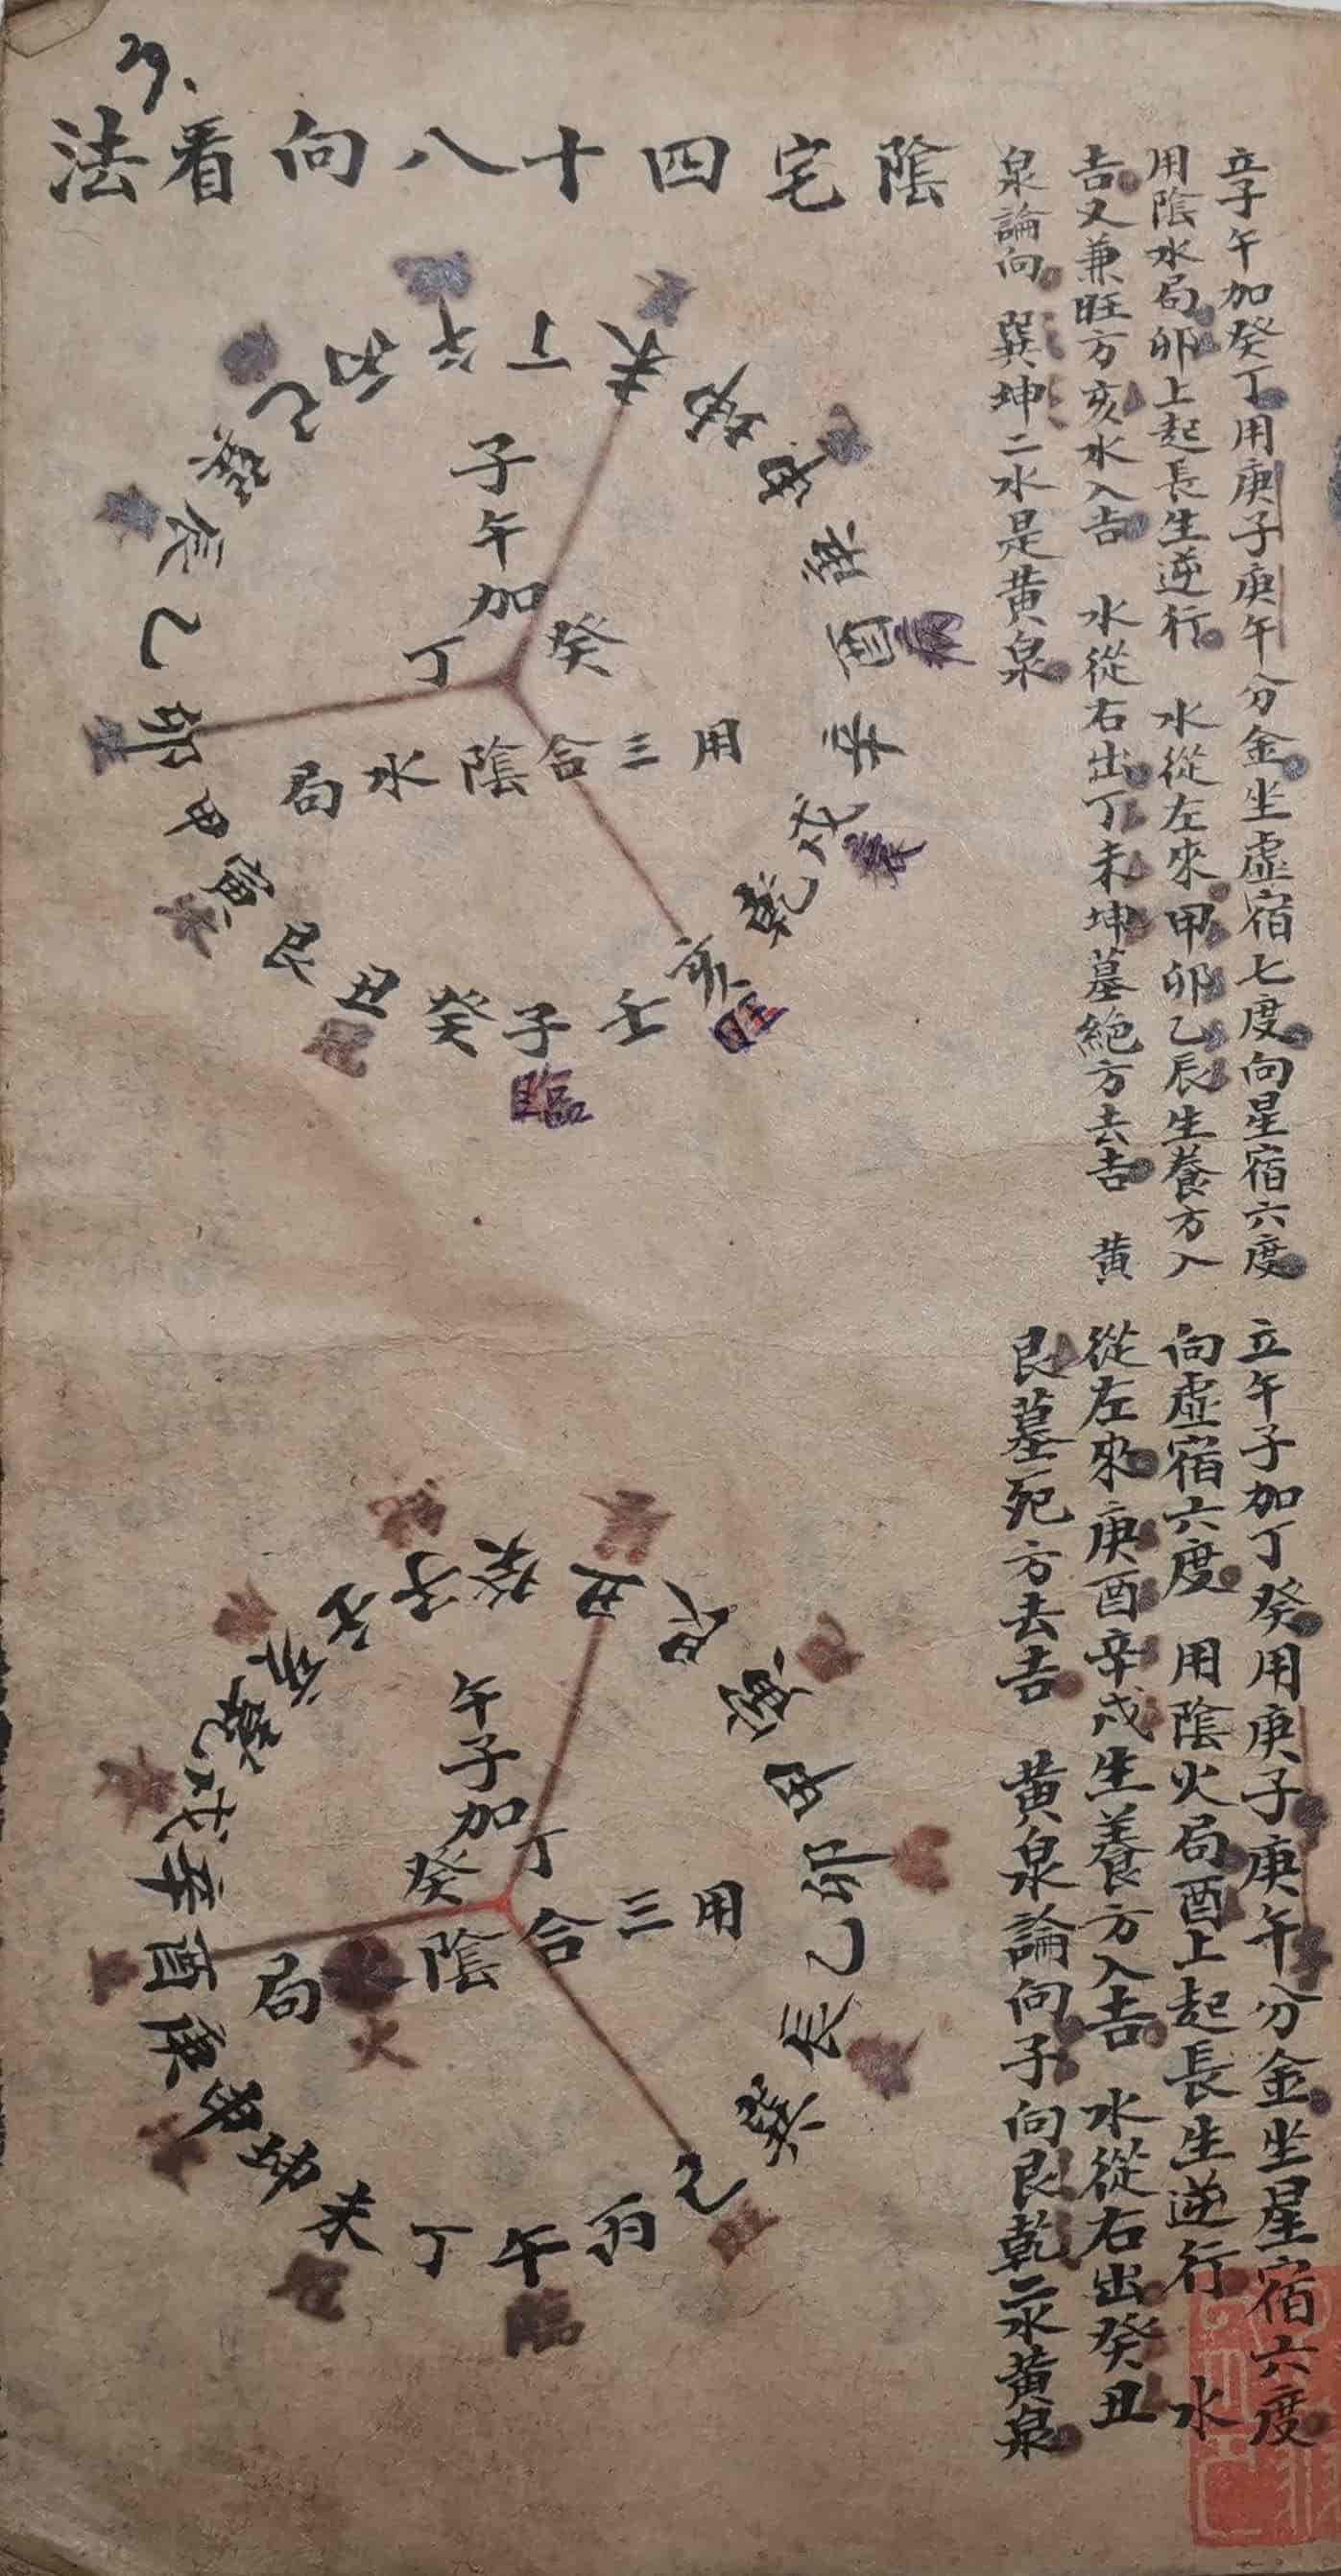 29.
陰宅四十八向看法
立子午加癸丁用庚子庚午分金坐虛宿七度向星宿六度
用陰水局卯上起長生逆行 水從左來甲卯乙辰生養方入
吉又兼旺方亥水入吉 水從右出丁未坤墓絕方去吉 黄
泉論向 巽坤二水是黄泉
子午加
丁癸
用三合陰水局
午丁未坤申庚酉辛戌乾亥壬子癸丑艮寅甲卯乙辰巽巳丙
病
養
旺
臨
立午子加丁癸用庚子庚午分金坐星宿六度
向虛宿六度 用陰火局酉上起長生逆行 水
從左來庚酉辛戌生養方入吉 水從右出癸丑
艮墓死方去吉 黄泉論向子向艮乾二水黄泉
午子加
癸丁
用三合陰局
火
子癸丑艮寅甲卯乙辰巽巳丙午丁未坤申庚酉辛戌乾亥壬
旺
臨